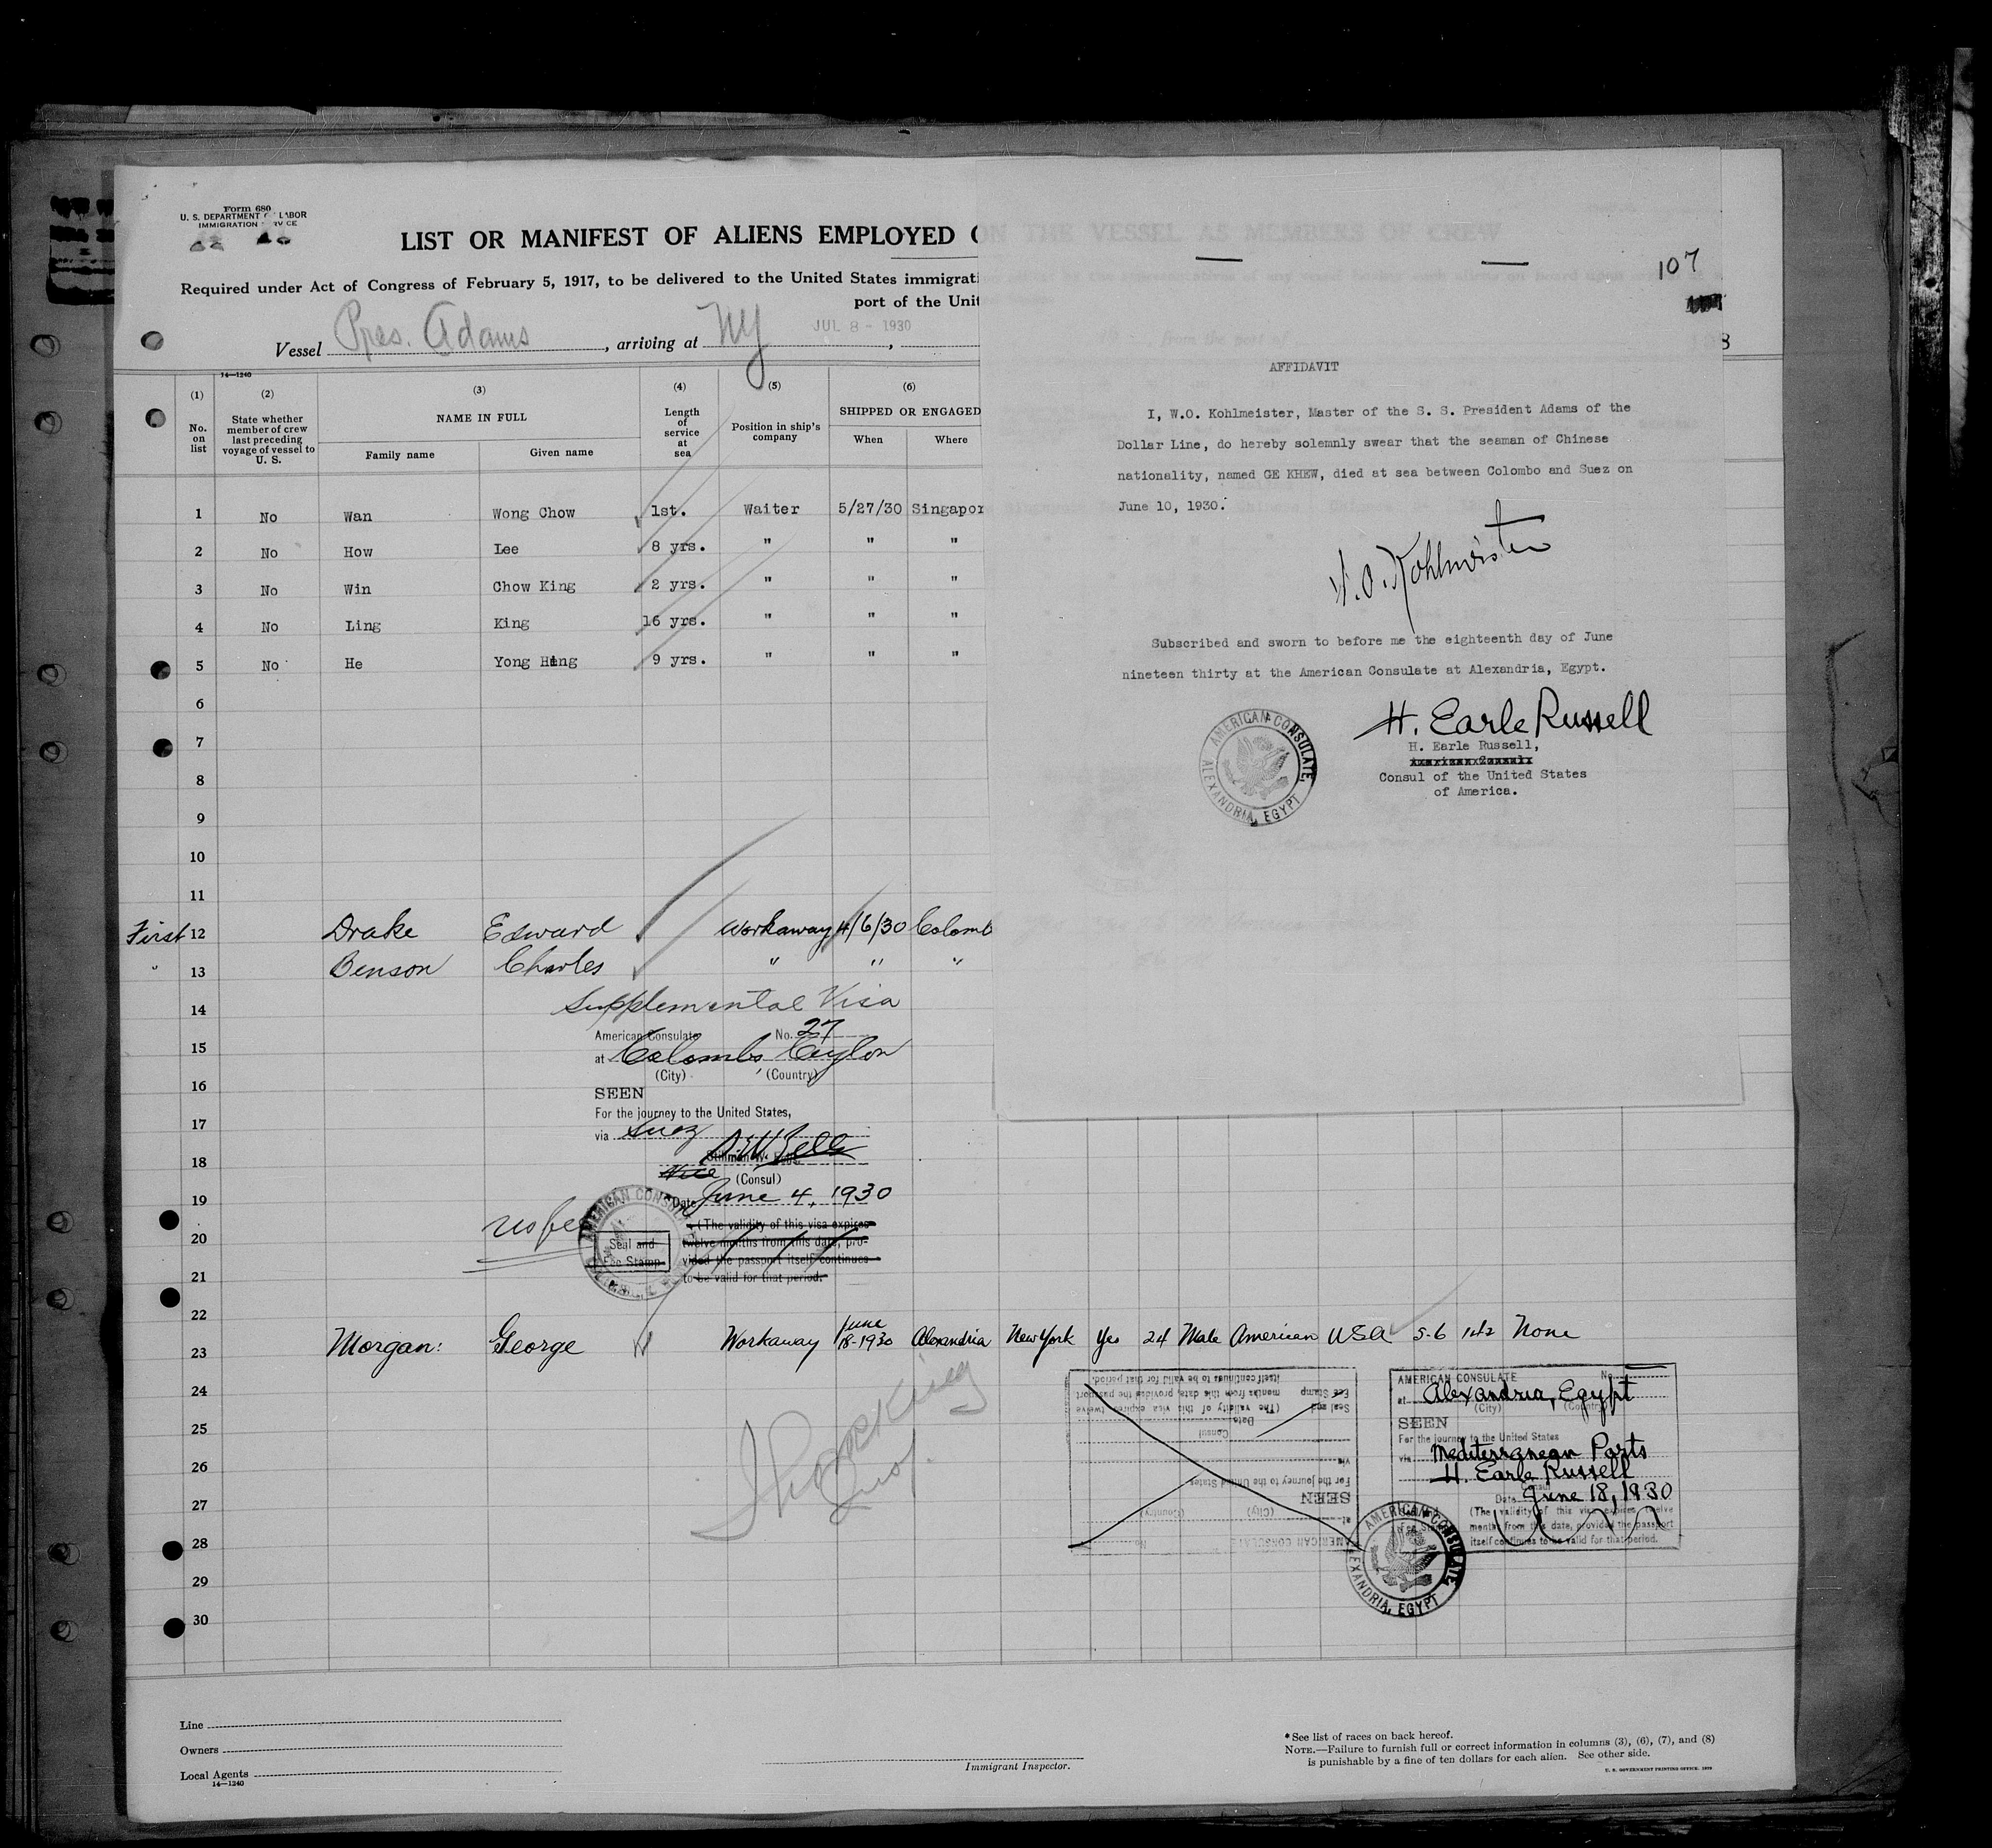 Form 680
U. S. DEPARTMENT LABOR
IMMIGRATION
LIST OR MANIFEST OF ALIENS EMPLOYED ON THE VESSEL AS MEMBERS OF CREW
Required under Act of Congress of February 5, 1917, to be delivered to the United States immigrati
port of the Unit
Vessel Pres. Adams, arriving at NY, JUL 8 - 1930
14—1240
(1) (2) (3) (4) (5) (6)
No. on list
State whether member of crew last preceding voyage of vessel to U. S.
NAME IN FULL
Family name Given name
Length of service at sea
Position in ship's company
SHIPPED OR ENGAGED
When Where
1 No Wan Wong Chow 1st. Waiter 5/27/30 Singapor
2 No How Lee 8 yrs. " " "
3 No Win Chow King 2 yrs. " " "
4 No Ling King 16 yrs. " " "
5 No He Yong Hing 9 yrs. " " "
6
7
8
9
10
11
First 12 Drake Edward Workaway 4/6/30 Colomb
" 13 Benson Charles " " "
14
Supplemental Visa
American Consulate No. 27
15
at Colombo, Ceylon
(City) (Country)
16
SEEN
For the journey to the United States,
17
via Suez
18
Vice (Consul)
19
Date June 4, 1930
no fee
AMERICAN CONSUL
20
Seal and Fee Stamp
(The validity of this visa expires
twelve months from this date, pro-
vided the passport itself continues
to be valid for that period.
21
22
23 Morgan: George Workaway June 18-1930 Alexandria New York Yes 24 Male American USA 5-6 142 None
24
25
26
27
28
29
30
AMERICAN CONSULATE No.
at
(City) (Country)
SEEN
For the journey to the United States
via
Consul
Date
Seal and Fee Stamp
(The validity of this visa expires twelve
months from this date, provided the passport
itself continues to be valid for that period.
AMERICAN CONSULATE No.
at Alexandria, Egypt
(City) (Country)
SEEN
For the journey to the United States
via Mediterranean Ports
H. Earle Russell
Consul
Date June 18, 1930
(The validity of this visa expires twelve
months from this date, provided the passport
itself continues to be valid for that period.
AMERICAN CONSULATE,
ALEXANDRIA, EGYPT
Line
Owners
Local Agents
14—1240
Immigrant Inspector.
* See list of races on back hereof.
NOTE.—Failure to furnish full or correct information in columns (3), (6), (7), and (8)
is punishable by a fine of ten dollars for each alien. See other side.
U. S. GOVERNMENT PRINTING OFFICE
107
AFFIDAVIT
I, W.O. Kohlmeister, Master of the S. S. President Adams of the
Dollar Line, do hereby solemnly swear that the seaman of Chinese
nationality, named GE KHEW, died at sea between Colombo and Suez on
June 10, 1930.
W. O. Kohlmeister
Subscribed and sworn to before me the eighteenth day of June
nineteen thirty at the American Consulate at Alexandria, Egypt.
AMERICAN CONSULATE,
ALEXANDRIA, EGYPT
H. Earle Russell
H. Earle Russell,
American Consul
Consul of the United States
of America.